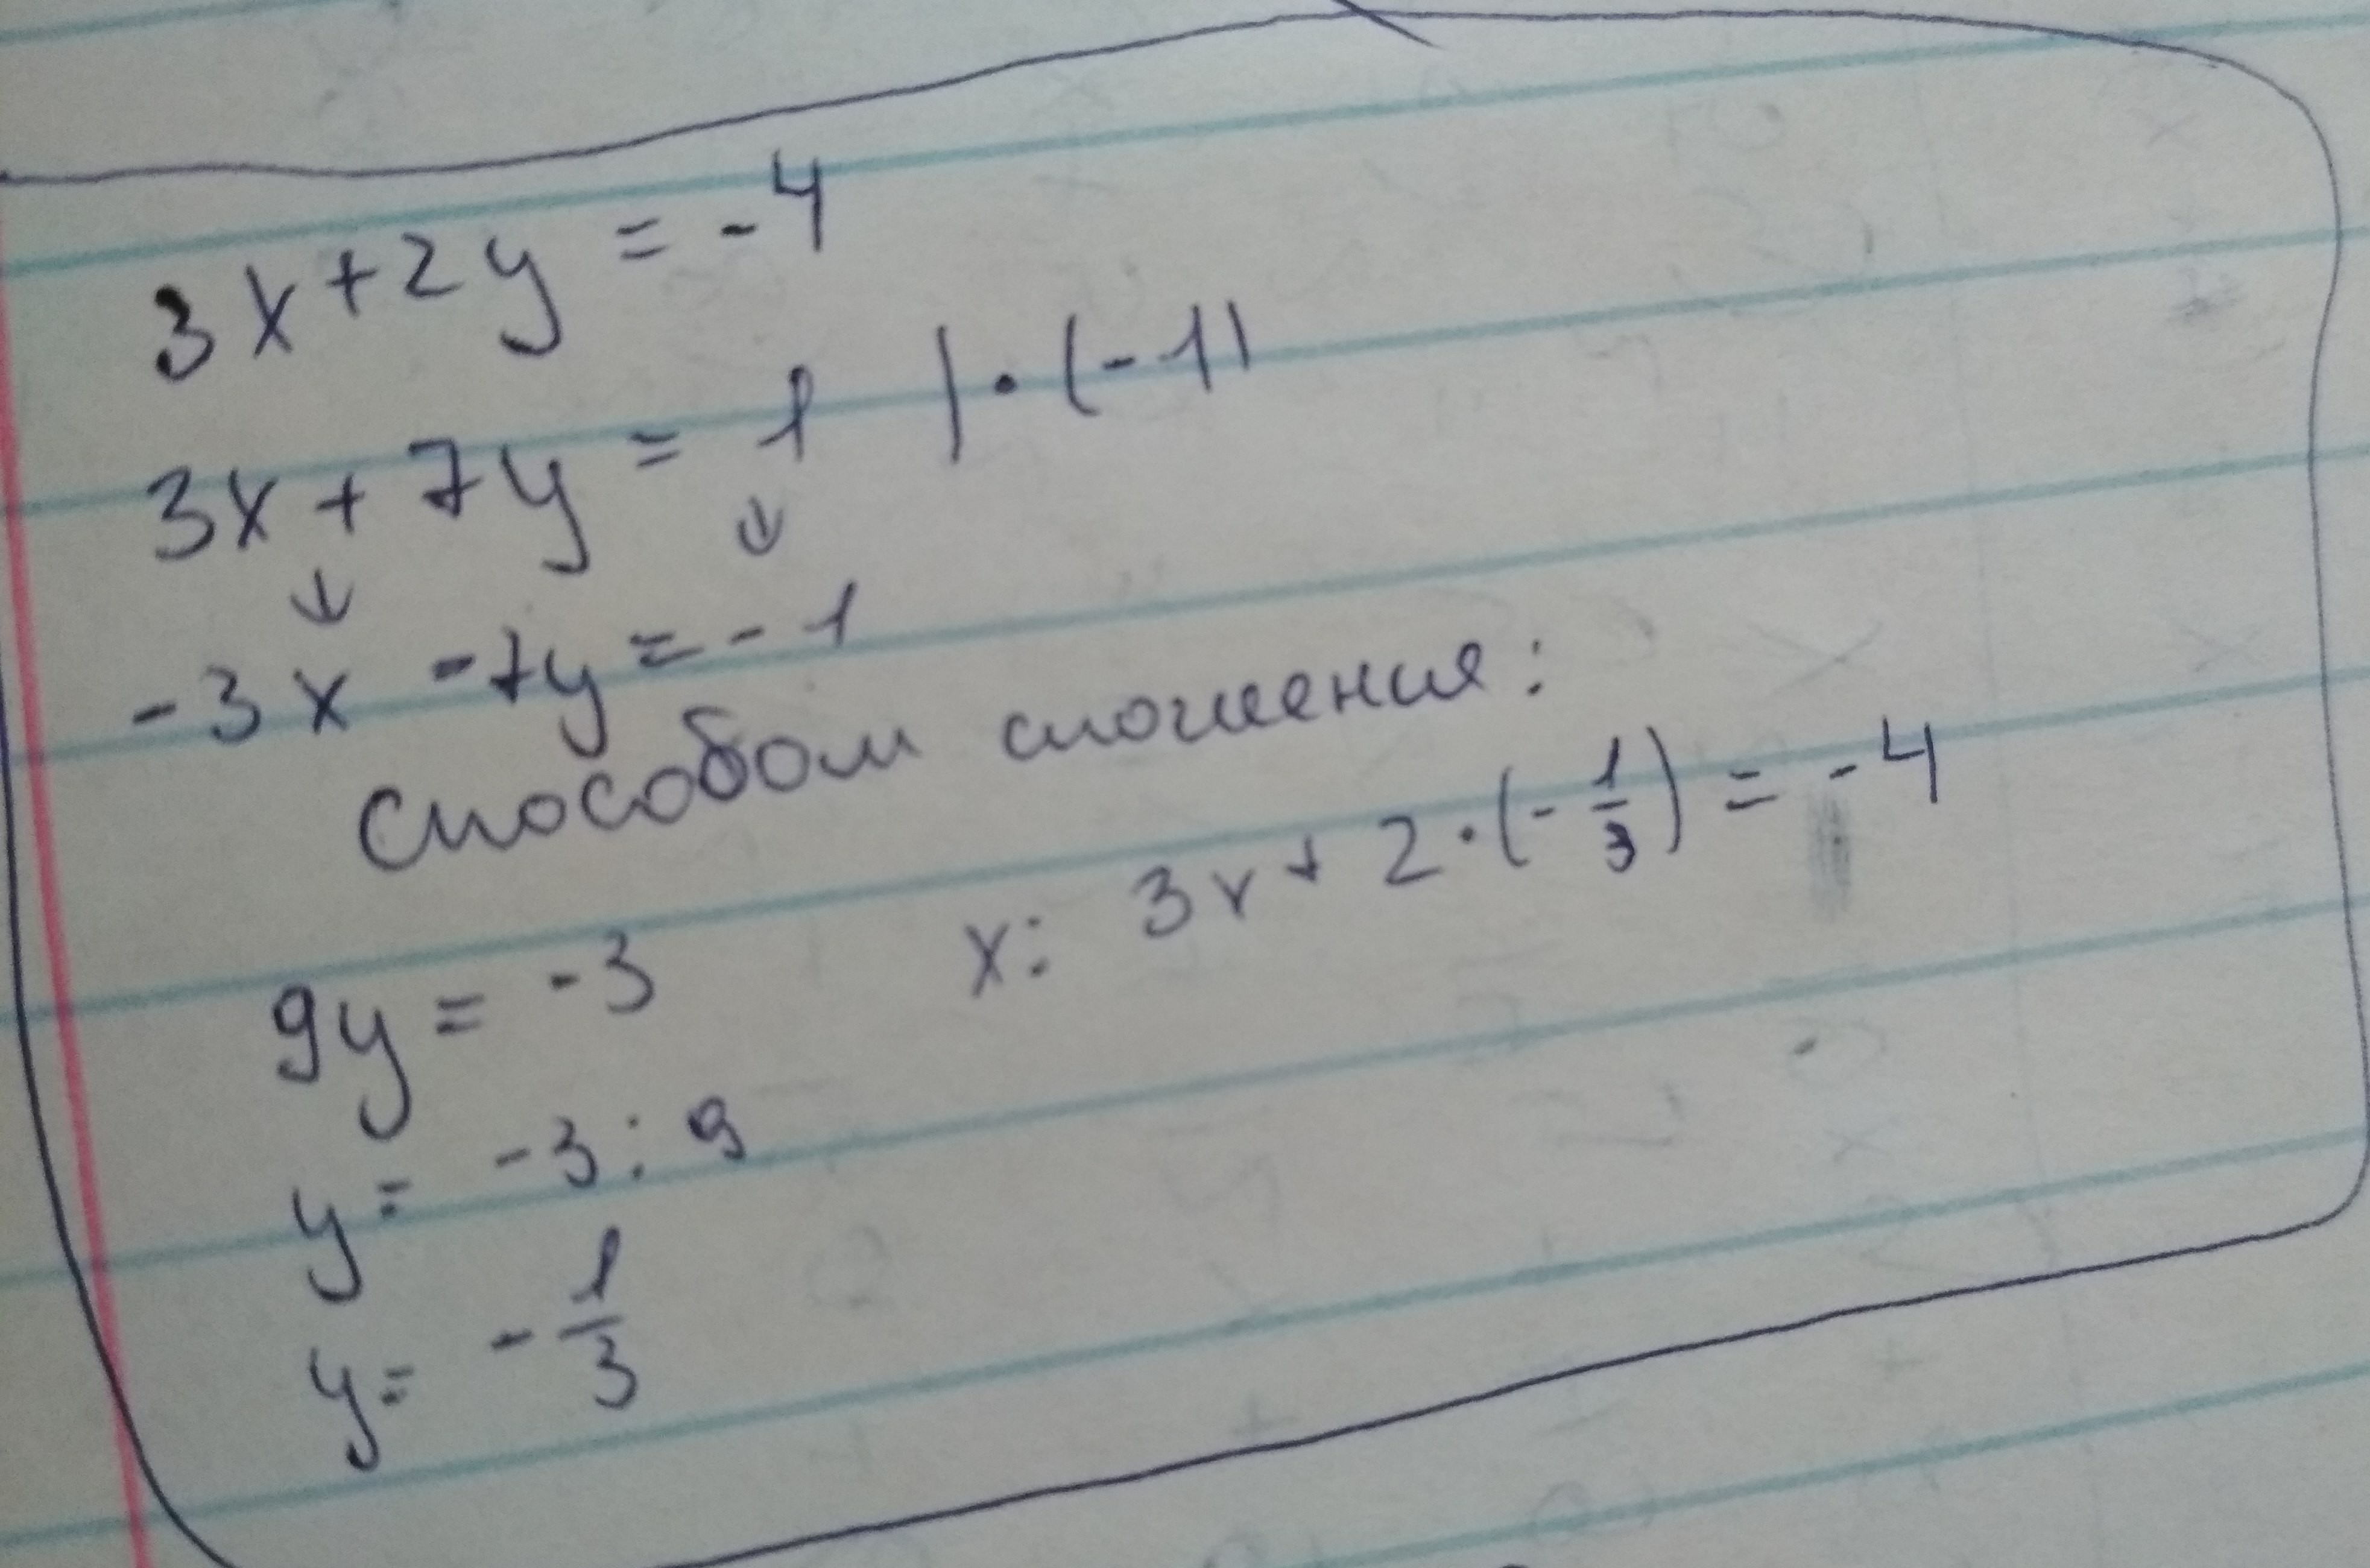 3x+2y = -4
3x + 7y = 1 | · (-1)
↓ ↓
-3x -7y = -1
Способом сложения:
9y = -3 x: 3x + 2·(-1/3) = -4
y = -3 : 9
y = -1/3